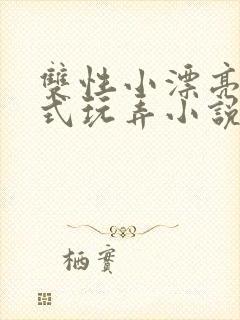 雙性小漂亮
式玩弄小說
栖實